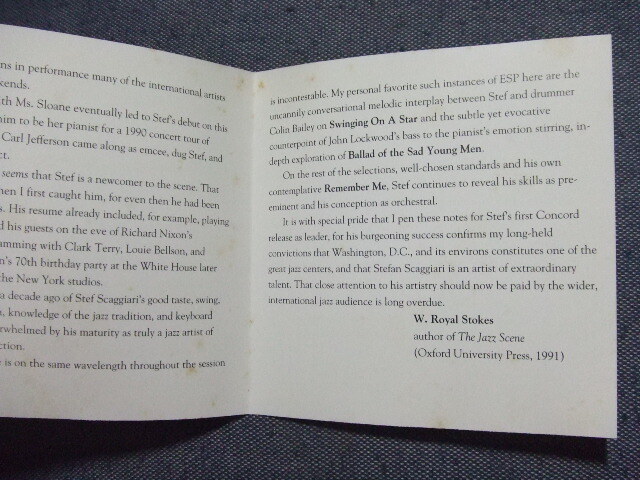 ns in performance many of the international artists
kends.
th Ms. Sloane eventually led to Stef's debut on this
him to be her pianist for a 1990 concert tour of
Carl Jefferson came along as emcee, dug Stef, and
ct.
seems that Stef is a newcomer to the scene. That
hen I first caught him, for even then he had been
s. His resume already included, for example, playing
d his guests on the eve of Richard Nixon's
amming with Clark Terry, Louie Bellson, and
n's 70th birthday party at the White House later
the New York studios.
a decade ago of Stef Scaggiari's good taste, swing,
n, knowledge of the jazz tradition, and keyboard
rwhelmed by his maturity as truly a jazz artist of
ction.
e is on the same wavelength throughout the session
is incontestable. My personal favorite such instances of ESP here are the
uncannily conversational melodic interplay between Stef and drummer
Colin Bailey on Swinging On A Star and the subtle yet evocative
counterpoint of John Lockwood's bass to the pianist's emotion stirring, in-
depth exploration of Ballad of the Sad Young Men.
On the rest of the selections, well-chosen standards and his own
contemplative Remember Me, Stef continues to reveal his skills as pre-
eminent and his conception as orchestral.
It is with special pride that I pen these notes for Stef's first Concord
release as leader, for his burgeoning success confirms my long-held
convictions that Washington, D.C., and its environs constitutes one of the
great jazz centers, and that Stefan Scaggiari is an artist of extraordinary
talent. That close attention to his artistry should now be paid by the wider,
international jazz audience is long overdue.
W. Royal Stokes
author of The Jazz Scene
(Oxford University Press, 1991)